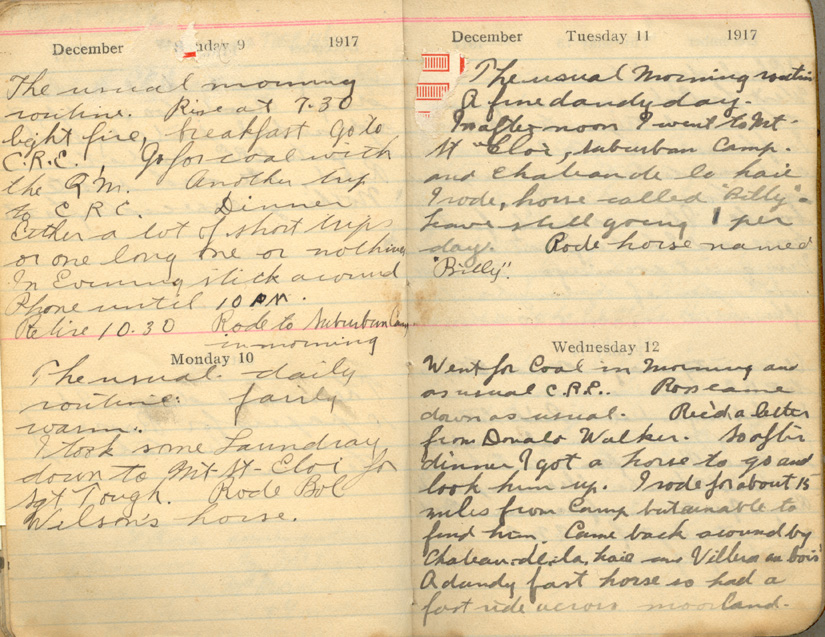 December Sunday 9 1917
The usual morning
routine. Rise at 7.30
light fire, breakfast Go to
C.R.E., Go for coal with
the Q.M. Another trip
to C R C. Dinner
Either a lot of short trips
or one long one or nothing
In Evening stick around
Phone until 10 P.M.
Retire 10.30 Rode to Suburban Camp
in morning
Monday 10
The usual daily
routine. fairly
warm.
I took some Laundray
down to Mt-St-Eloi for
Sgt Tough. Rode Bol
Wilson's horse.
December Tuesday 11 1917
The usual Morning routine
A fine dandy day.
In after noon I went to Mt-
St Eloi, Suburban Camp.
and Chateau de la haie
I rode, horse called "Billy" -
Leave still going 1 per
day. Rode horse named
"Billy".
Wednesday 12
Went for Coal in Morning and
as usual C.R.E. Ross came
down as usual. Rec'd a letter
from Donald Walker. So after
dinner I got a horse to go and
look him up. I rode for about 15
miles from Camp but unable to
find him. Came back around by
Chateau-de-la-haie and Villers au bois
A dandy fast horse so had a
fast ride across moorland.